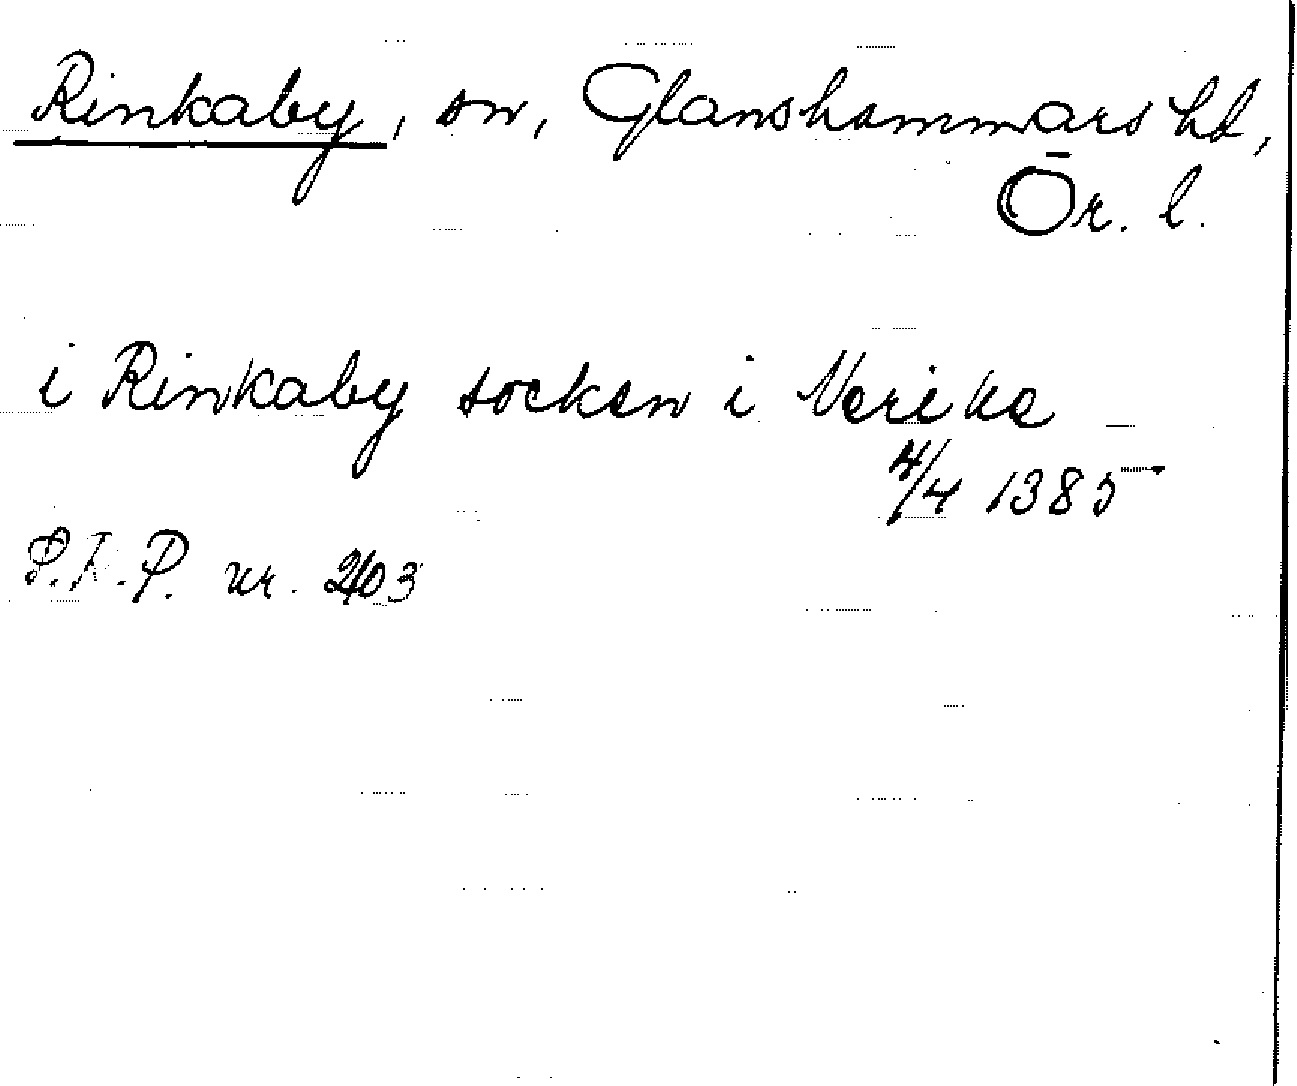 Rinkaby, sn, Glanshammars hd,
Ör. l.
i Rinkaby socken i Nerike
4/4 1385
P.R.P. nr. 2403